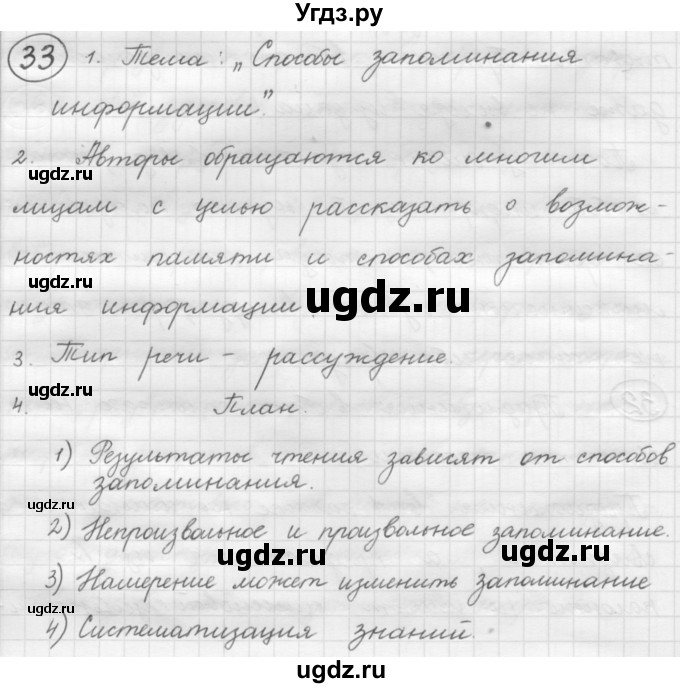 Угдз.ру
33 1. Тема: „Способы запоминания
информации".
2. Авторы обращаются ко многим
ugdz.ru
лицам с целью рассказать о возмож-
ностях памяти и способах запомина-
ugdz.ru
ния информации.
ugdz.ru
3. Тип речи - рассуждение.
ugdz.ru
4. План.
1) Результаты чтения зависят от способов
запоминания.
ugdz.ru
2) Непроизвольное и произвольное запоминание.
ugdz.ru
ugdz.ru
3) Намерение может изменить запоминание
ugdz.ru
4) Систематизация знаний.
ugdz.ru